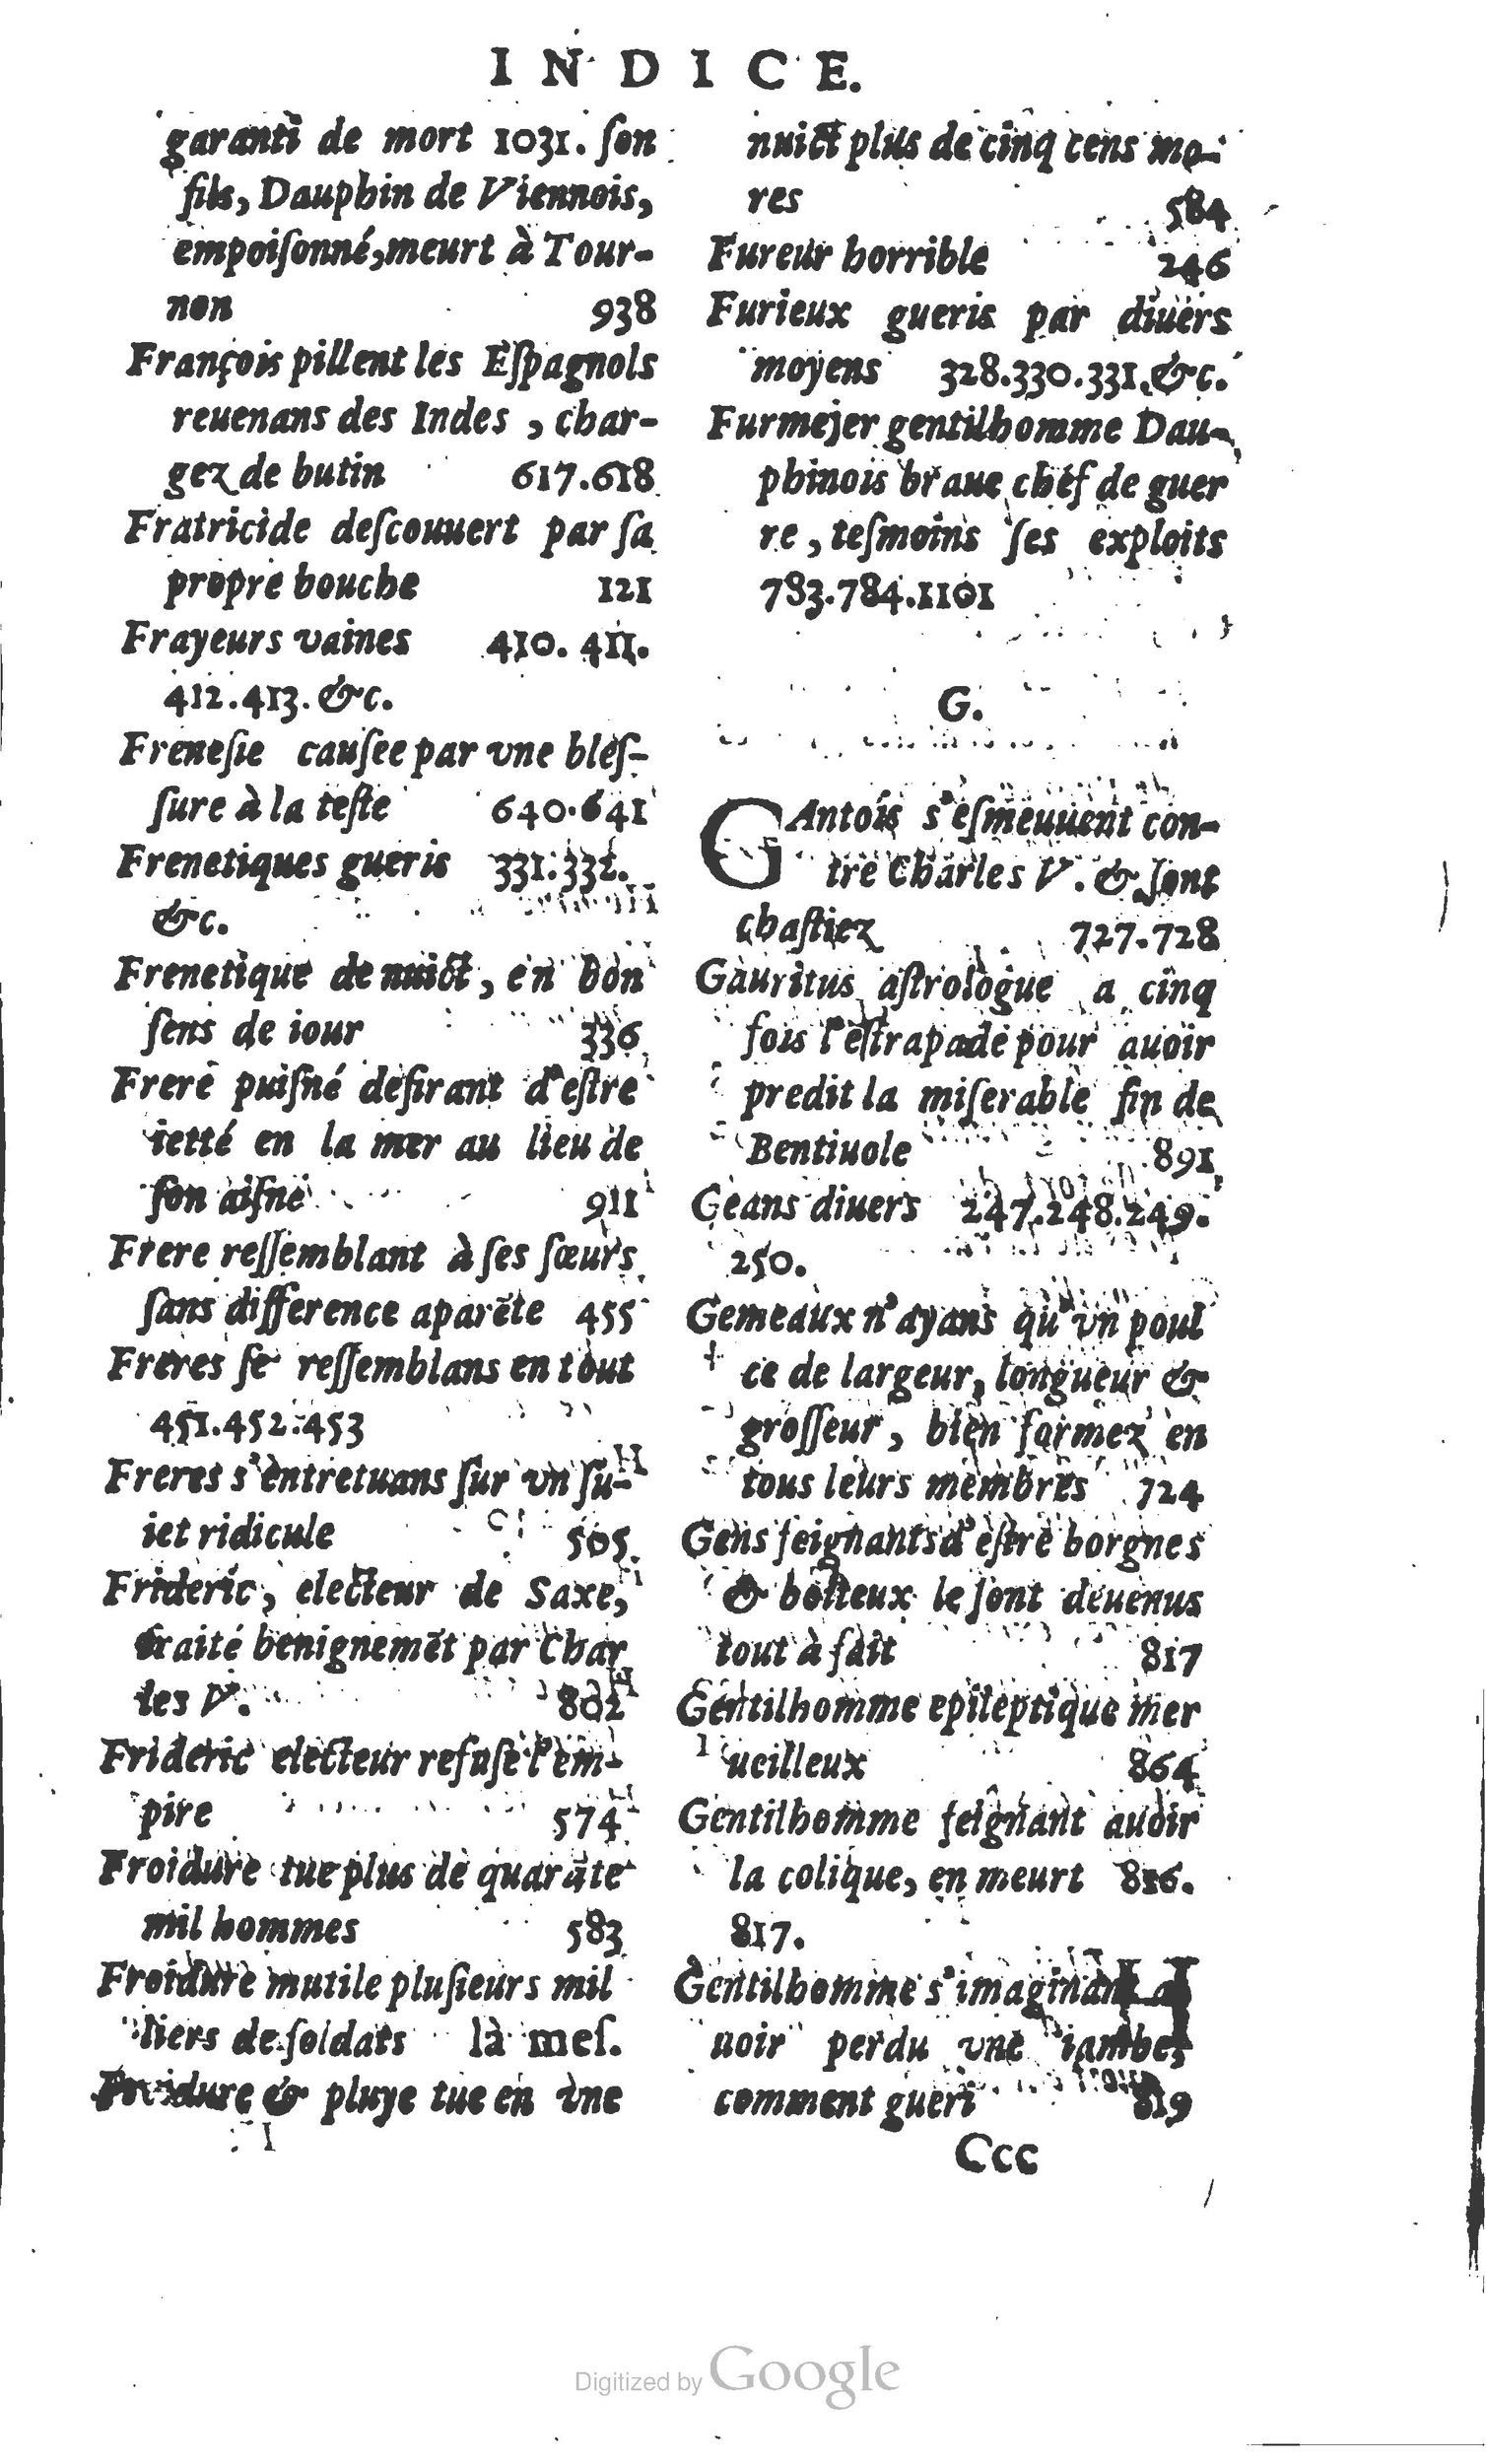 INDICE.
garanti de mort 1031. ſon
fils, Dauphin de Viennois,
empoiſonné, meurt à Tour-
non 938
François pillent les Eſpagnols
reuenans des Indes, char-
gez de butin 617.618
Fratricide deſcouuert par ſa
propre bouche 121
Frayeurs vaines 410. 411.
412.413. &c.
Freneſie cauſee par vne bleſ-
ſure à la teſte 640.641
Frenetiques gueris 331.332.
&c.
Frenetique de nuict, en bon
ſens de iour 336
Frere puiſné deſirant d'eſtre
ietté en la mer au lieu de
ſon aiſné 911
Frere reſſemblant à ſes sœurs
ſans difference aparẽte 455
Freres ſe reſſemblans en tout
451.452.453
Freres s'entretuans ſur vn ſu-
iet ridicule 505
Frideric, electeur de Saxe,
traité benignemẽt par Char
les V. 802
Frideric electeur refuſe l'em-
pire 574
Froidure tue plus de quarãte
mil hommes 583
Froidure mutile pluſieurs mil
liers de ſoldats là meſ.
Froidure & pluye tue en vne
nuict plus de cinq cens mo-
res 584
Fureur horrible 246
Furieux gueris par diuers
moyens 328.330.331.&c.
Furmejer gentilhomme Dau-
phinois braue chef de guer
re, teſmoins ſes exploits
783.784.1101
G.
GAntois s'eſmeuuent con-
tre Charles V. & ſont
chaſtiez 727.728
Gauritus aſtrologue a cinq
fois l'eſtrapade pour auoir
predit la miſerable fin de
Bentiuole 891
Geans diuers 247.248.249.
250.
Gemeaux n'ayans qu'vn poul
ce de largeur, longueur &
groſſeur, bien formez en
tous leurs membres 724
Gens feignants d'eſtre borgnes
& boſteux le ſont deuenus
tout à fait 817
Gentilhomme epileptique mer
ueilleux 864
Gentilhomme feignant auoir
la colique, en meurt 816.
817.
Gentilhomme s'imaginant a-
uoir perdu vne iambe,
comment gueri 819
Ccc
Digitized by Google